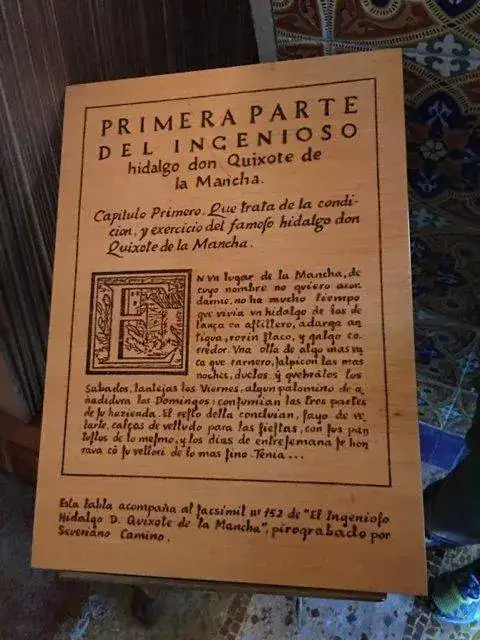 PRIMERA PARTE
DEL INGENIOSO
hidalgo don Quixote de
la Mancha.
Capitulo Primero. Que trata de la condi-
cion, y exercicio del famoso hidalgo don
Quixote de la Mancha.
EN vn lugar de la Mancha, de
cuyo nombre no quiero acor
darme, no ha mucho tiempo
que vivia vn hidalgo de los de
lança en astillero, adarga an
tigua, rozin flaco, y galgo co
rredor. Vna olla de algo mas va
ca que carnero, salpicon las mas
noches, duelos y quebrãtos los
Sabados, lantejas los Viernes, algun palomino de a
ñadidura los Domingos: consumian las tres partes
de su hazienda. El resto della concluian, sayo de ve
larte, calças de velludo para las fiestas, con sus pan
tuflos de lo mesmo, y los dias de entresemana se hon
rava cõ su vellori de lo mas fino. Tenia...
Esta tabla acompaña al facsimil nº 152 de "El Ingenioso
Hidalgo D. Quixote de la Mancha", pirograbado por
Severiano Camino.